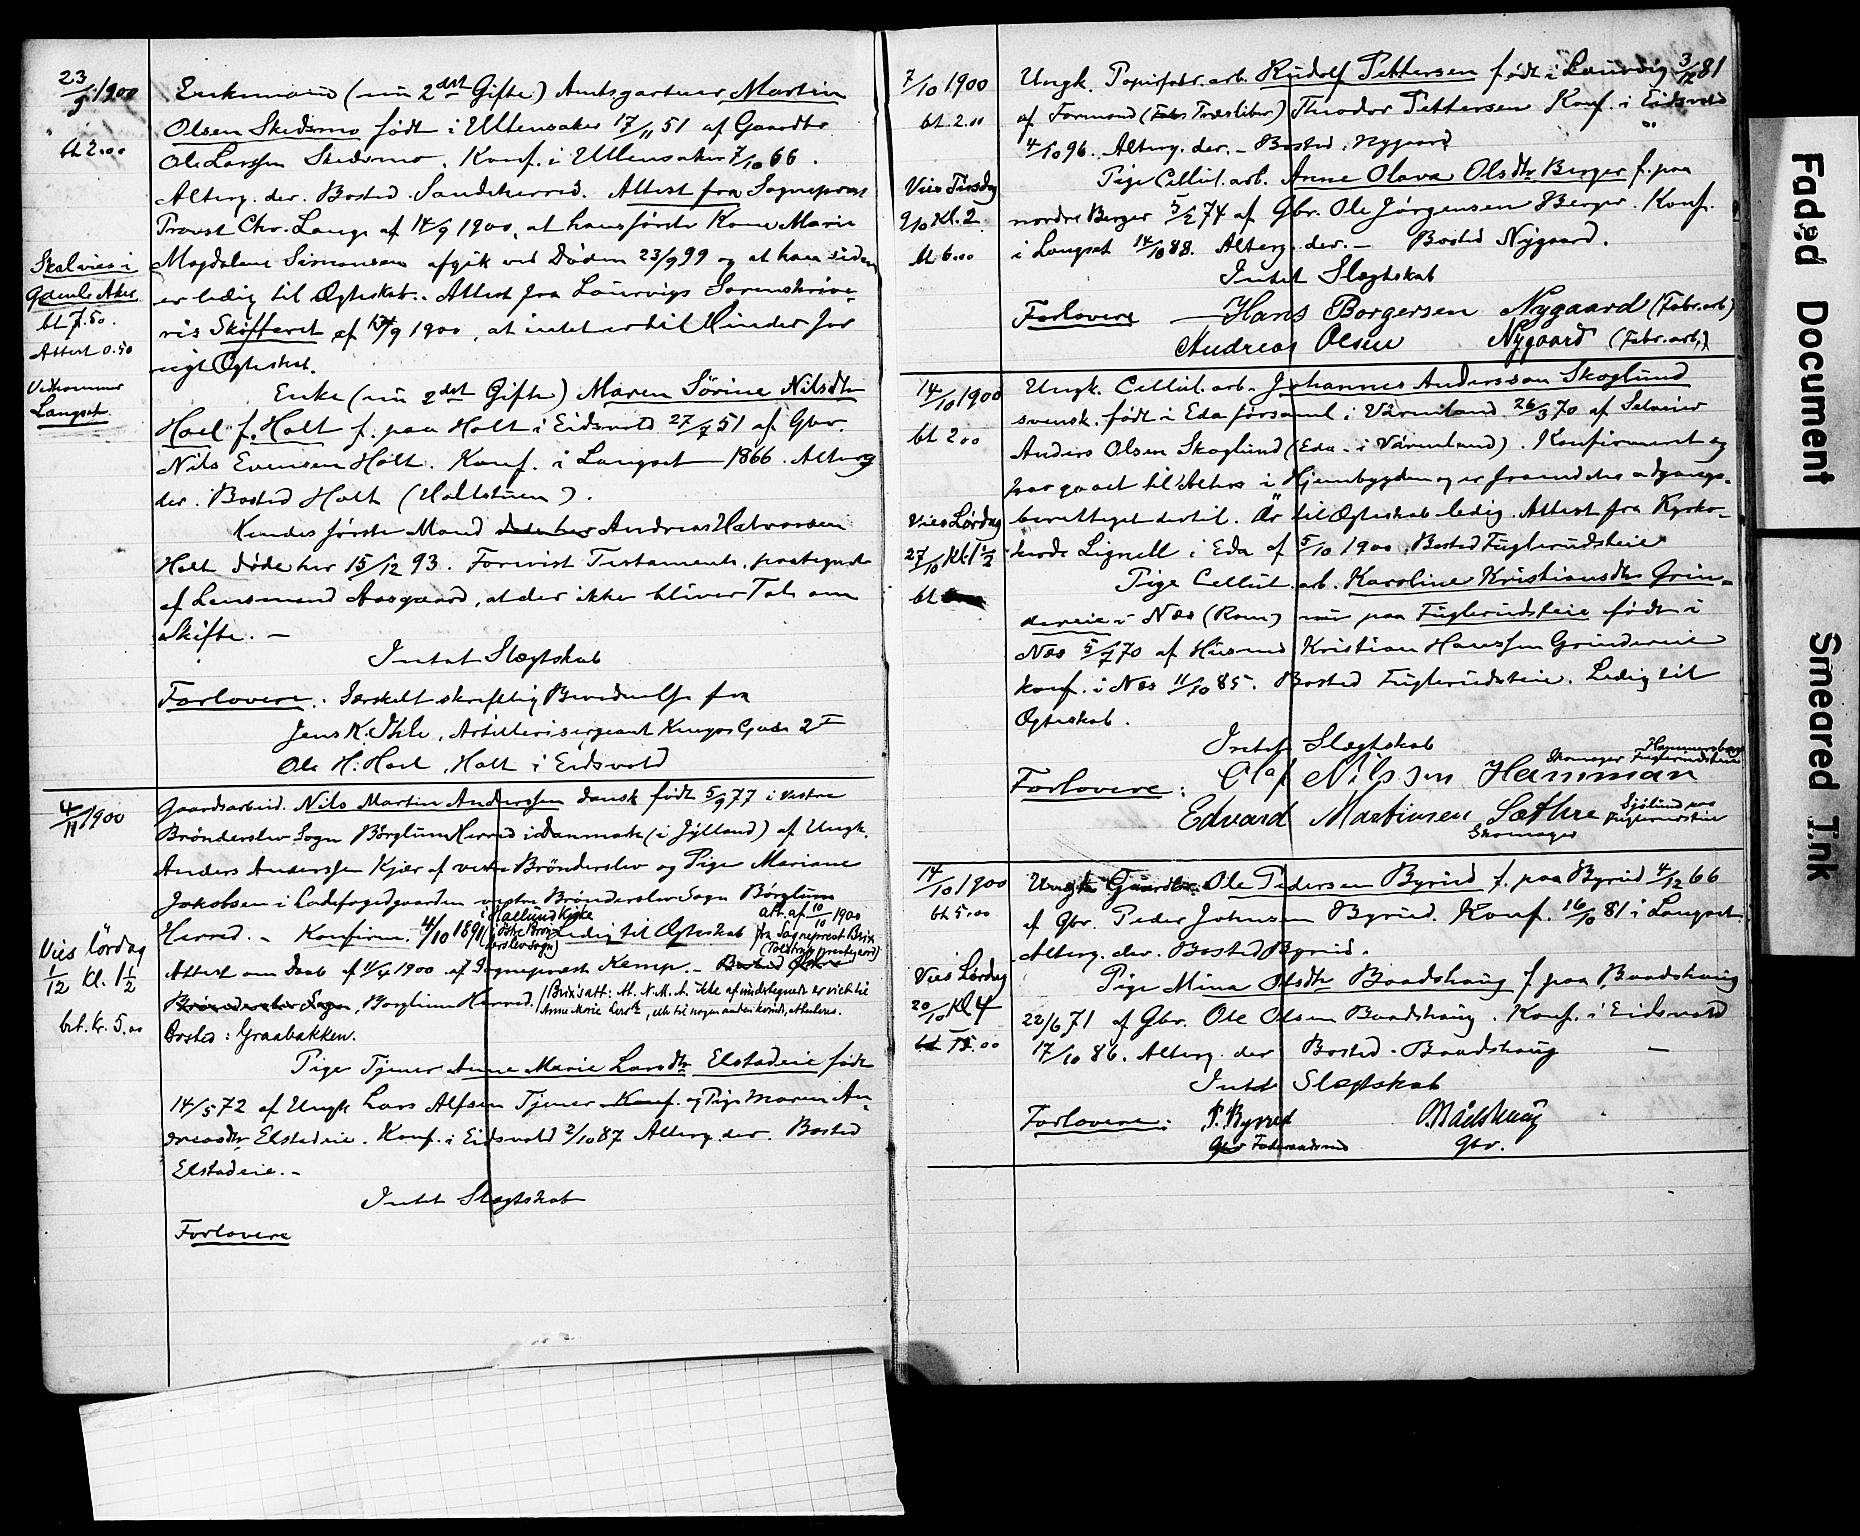 23/9 1900
bt 2.00
Enkemand (nu 2det Gifte) Amtsgartner Martin
Olsen Skedsmo født i Ullensaker 17/11 51 af Gaardbr
Ole Larssen Skedsmo. Konf. i Ullensaker 7/10 66.
Alterg. der. Bosted Sandeherred. Attest fra Sogneprest
Provst Chr. Lange af 14/9 1900, at hans første Kone Marie
Magdalene Simonsen afgik ved Døden 23/9 99 og at han siden
er ledig til Ægteskab. Attest fra Laurvigs Sorenskrive-
ris Skifteret af 9 1900, at intet er til Hinder for
nyt Ægteskab.
Skal vies i
Gamle Aker
bt 7.50.
Attest 0.50
Vedkommer
Langset.
Enke (nu 2det Gifte) Maren Sørine Nilsdtr
Hoel f. Holt f. paa Holt i Eidsvold 27/7 51 af Gbr.
Nils Evensen Holt. Konf. i Langset 1866. Alterg
der. Bosted Holt (Holtstuen).
Hendes første Mand døde her Andreas Halvorsen
Holt døde her 15/12 93. Forevist Testamente, paategnet
af Lensmand Aasgaard, at der ikke bliver Tale om
Skifte. —
Intet Slægtskab
Forlovere: Særskilt skriftlig Bevidnelse fra
Jens K. Ihle, Artillerisergeant Kruges Gade 2 I
Ole H. Hoel, Holt i Eidsvold
4/11 1900
Gaardsarbeid. Nils Martin Anderssen dansk født 5/9 77 i vestre
Brønderslev Sogn Børglum Herred i Danmark (i Jylland) af Ungk.
Anders Anderssen Kjær af vestre Brønderslev og Pige Mariane
Jakobsen i Ladefogedgaarden vestre Brønderslev Sogn Børglum
Herred. — Konfirm. 4/10 1891 i Hallund Kirke (Østre Brøn-
derslev Sogn) Ledig til Ægteskab att. af 10/10 1900
fra Sogneprest Brix
(Tolstrup prestegaard)
Attest om Daab af 11/4 1900 af Sogneprest Kemp. — Bosted Østre
Brønderslev Sogn, Børglum Herred. (Brix's att: At N. M. A. ikke af undertegnede er viet til
Anne Marie Larsdtr, eller til nogen anden kvinde, attesteres.
Bosted: Graabakken.
Vies lørdag
1/12 Kl. 1 1/2
bet. Kr. 5.00
Pige Tjener Anne Marie Larsdtr Elstadeie født
14/5 72 af Ungk Lars Alfsen Tjener Konf. og Pige Maren An-
dreasdtr Elstadeie. Konf. i Eidsvold 2/10 87 Alterg. der. Bosted
Elstadeie. —
Intet Slægtskab
Forlovere
7/10 1900
bt. 2.00
Ungk. Papirfabr.arb. Rudolf Pettersen født i Laurvig 3/12 81
af Formand (Træsliber) Theodor Pettersen Konf. i Eidsvold
4/10 96. Alterg. der. — Bosted: Nygaard
Vies Tirsdag
9/10 Kl. 2
bt 6.00
Pige Cellul.arb. Anne Olava Olsdtr Berger f. paa
nordre Berger 5/2 74 af Gbr. Ole Jørgensen Berger. Konf.
i Langset 14/10 88. Alterg. der. — Bosted Nygaard.
Intet Slægtskab
Forlovere — Hans Borgersen Nygaard (Fabr.arb)
Andreas Olsen Nygaard (Fabr.arb.)
14/10 1900
bt 2.00
Ungk. Cellul.arb. Johannes Andersson Skoglund
svensk. født i Eda församl i Värmland 26/3 70 af Selveier
Anders Olsen Skoglund (Eda i Värmland). Konfirmeret og
har gaaet til Alters i Hjembygden og er fremdeles adgangs-
berettiget dertil. Är til Ægteskab ledig. Attest fra Kyrko-
herde Lignell i Eda af 5/10 1900. Bosted Fuglerudseie
Vies Lørdag
27/10 Kl 1 1/2
bt
Pige Cellul.arb. Karoline Kristiansdtr Grin-
dereie i Næs (Rom) nu paa Fuglerudseie født i
Næs 5/7 70 af Husmd Kristian Hanssen Grindereie
konf. i Næs 11/10 85. Bosted Fuglerudseie. Ledig til
Ægteskab.
Intet Slægtskab
Forlovere: Olaf Nilssen Hamman Skomager Hammersborg
Fuglerudseie
Edvard Martinsen Sæthre Sjølund paa
Fuglerudseie
Skomager
14/10 1900
bt 5.00
Ungk Gaardbr. Ole Pedersen Byrud f. paa Byrud 4/12 66
af Gbr. Peder Johnsen Byrud. Konf. 16/10 81 i Langset.
Alterg. der. Bosted Byrud.
Vies Lørdag
20/10 Kl 4
bt 15.00
Pige Mina Olsdtr Baadshaug f. paa Baadshaug
22/6 71 af Gbr. Ole Olsen Baadshaug. Konf. i Eidsvold
17/10 86. Alterg. der Bosted Baadshaug —
Intet Slægtskab
Forlovere: P. Byrud O. Bådshaug
Gbr Føderaadsmd Gbr.
Faded Document
Smeared Ink